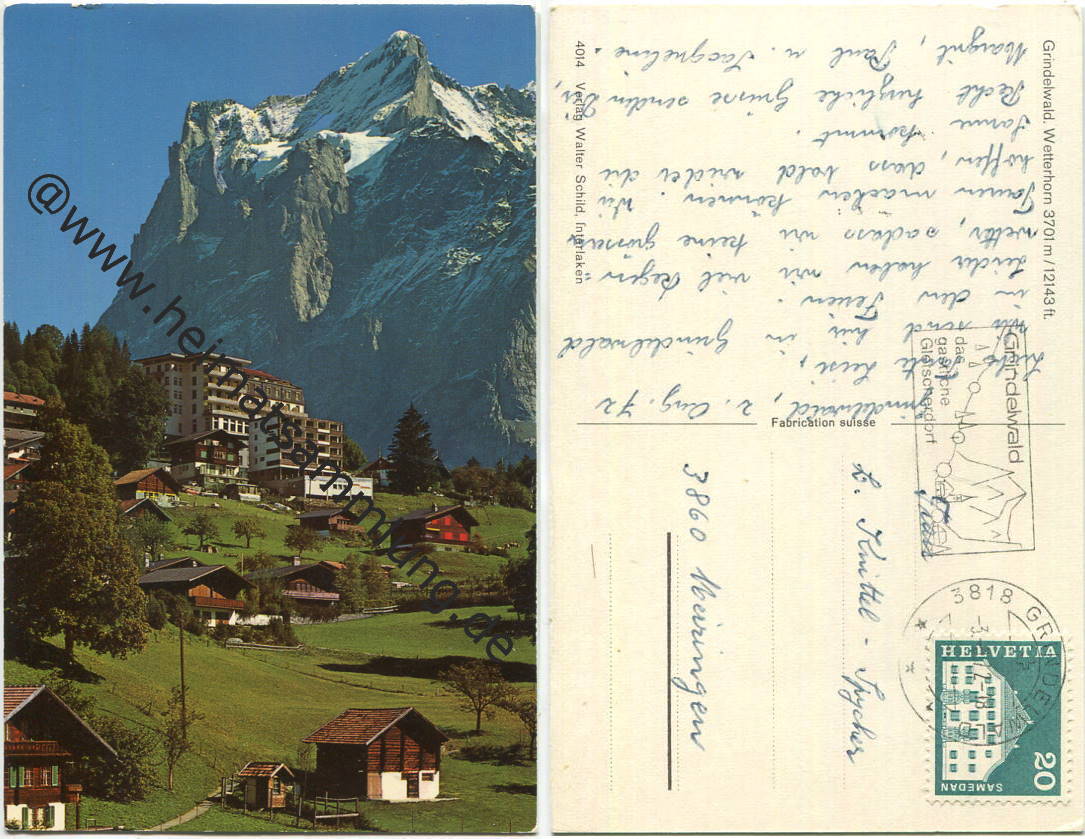 @www.heimatsammlung.de
Grindelwald. Wetterhorn 3701 m / 12143 ft.
4014 Verlag Walter Schild, Interlaken
Fabrication suisse
Grindelwald, 2. Aug. 72
wir sind hier in Grindelwald
in den Ferien.
Leider haben wir viel Regen=
wetter, sodass wir keine grossen
Touren machen können. Wir
hoffen, dass bald wieder die
Sonne kommt.
Recht herzliche Grüsse senden Dir,
Margrit, Paul u. Jacqueline.
Grindelwald
das
gastliche
Gletscherdorf
Frau
L. Knüttel - Spycher
3860 Meiringen
3818 GRINDELWALD
HELVETIA
SAMEDAN
20